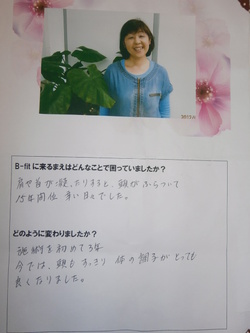 B-fitに来るまえはどんなことで困っていましたか?
肩や首が凝ったりすると、頭がふらついて
15年間位 辛い日々でした。
どのように変わりましたか?
施術を初めて3年
今では、頭もすっきり 体の調子がとっても
良くなりました。